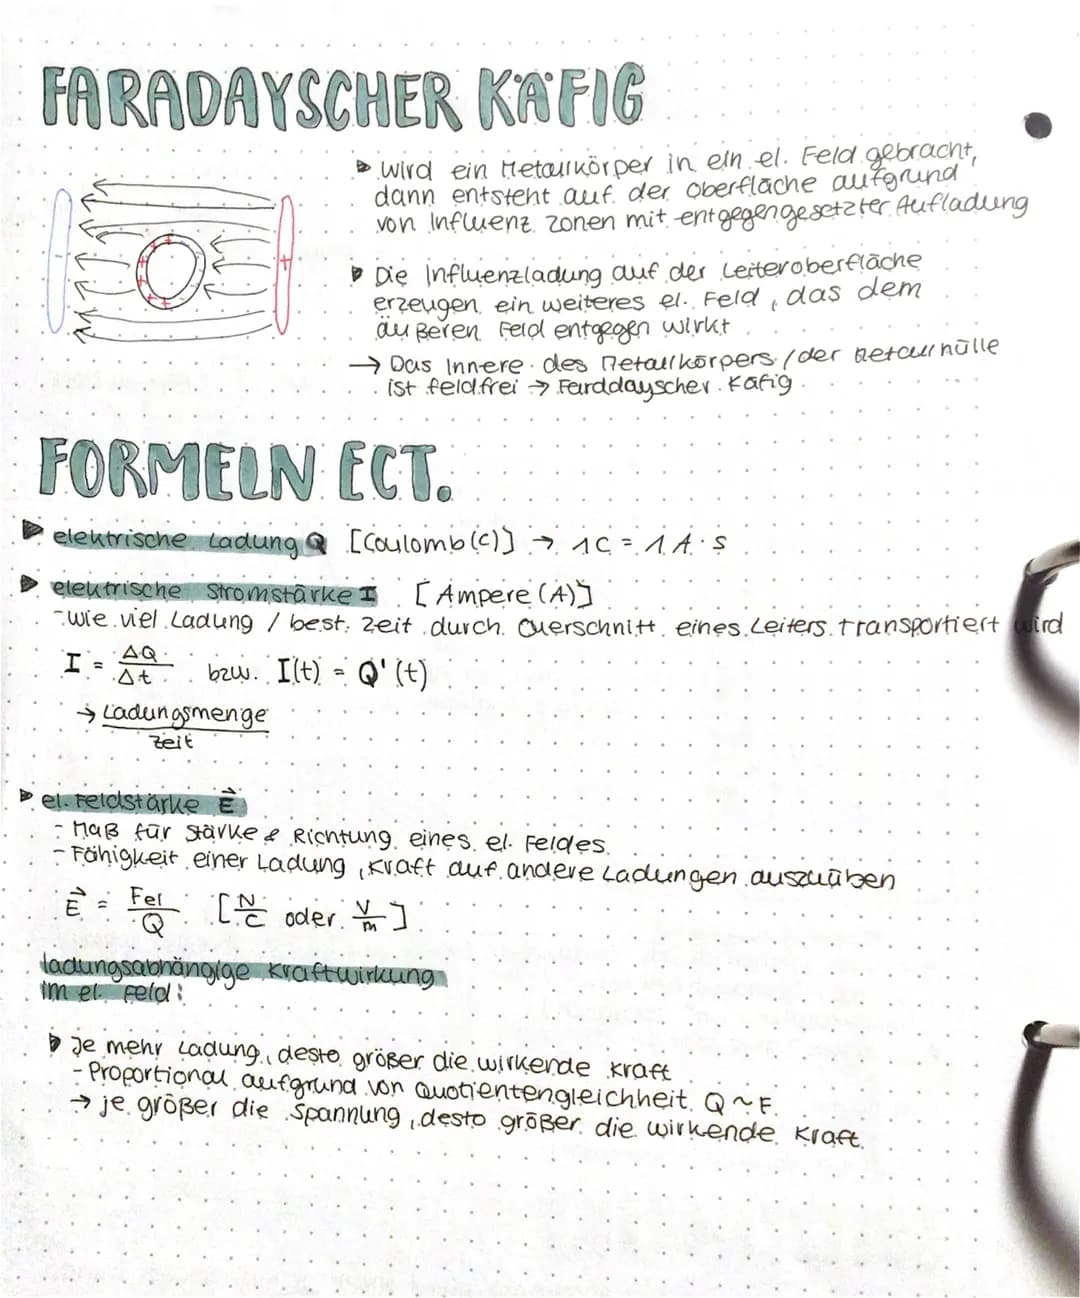 FARADAYSCHER KÄFIG
▷ wird ein Metallkörper in ein el. Feld gebracht,
dann entsteht auf der Oberfläche aufgrund
von Influenz zonen mit entgegengesetzter Aufladung
▷ Die Influenzladung auf der Leiteroberfläche
erzeugen ein weiteres el. Feld, das dem
äußeren Feld entgegen wirkt
→ Das Innere des Metallkörpers / der Metallhülle
ist feldfrei → Farddayscher Käfig
- +
FORMELN ECT.
▷ elektrische Ladung Q [Coulomb (C)] → 1C = 1 A · s
▷ elektrische Stromstärke I [Ampere (A)]
- wie viel Ladung / best. Zeit durch Querschnitt eines Leiters transportiert wird
I = ΔQ / Δt bzw. I(t) = Q'(t)
→ Ladungsmenge
Zeit
▷ el. Feldstärke E⃗
- Maß für Stärke & Richtung eines el. Feldes
- Fähigkeit einer Ladung, Kraft auf andere Ladungen auszuüben
E⃗ = Fel / Q [N/C oder V/m]
ladungsabhängige Kraftwirkung
im el. Feld:
▷ Je mehr Ladung, desto größer die wirkende Kraft
- Proportional aufgrund von Quotientengleichheit Q ~ F
→ je größer die Spannung, desto größer die wirkende Kraft.